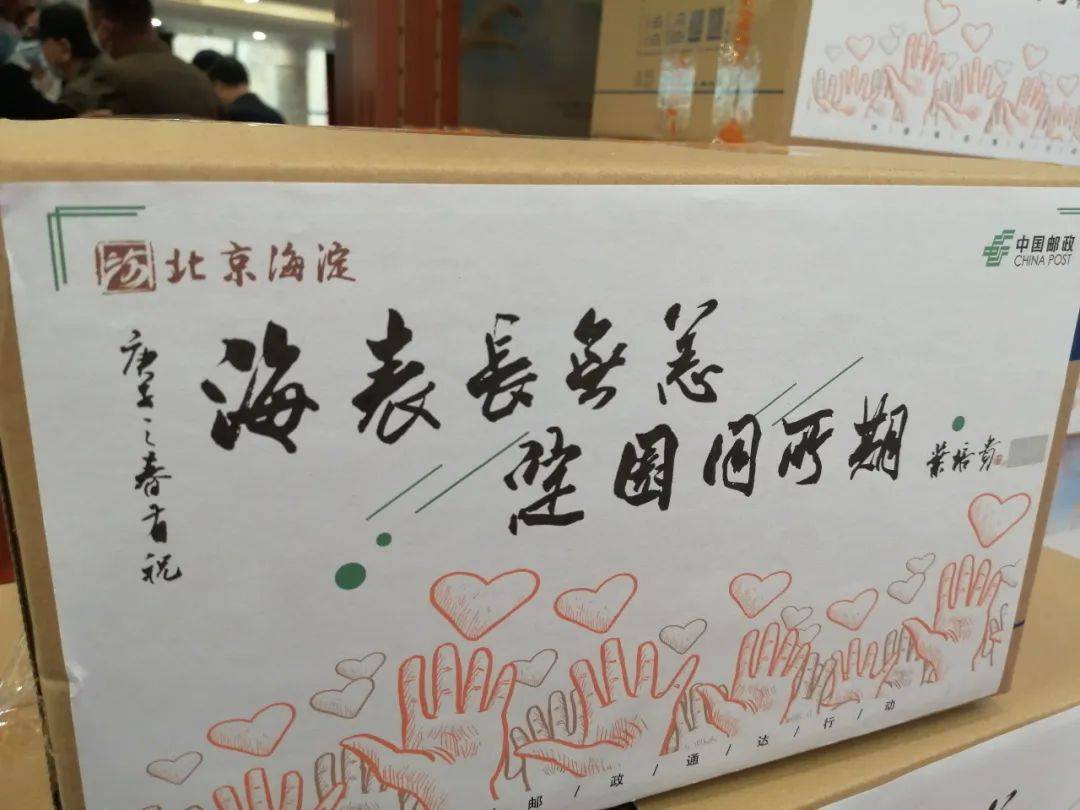 北京海淀
中国邮政
CHINA POST
庚子之春有祝
海表長無恙
淀園同所期
葉培貴
邮/政/通/达/行/动